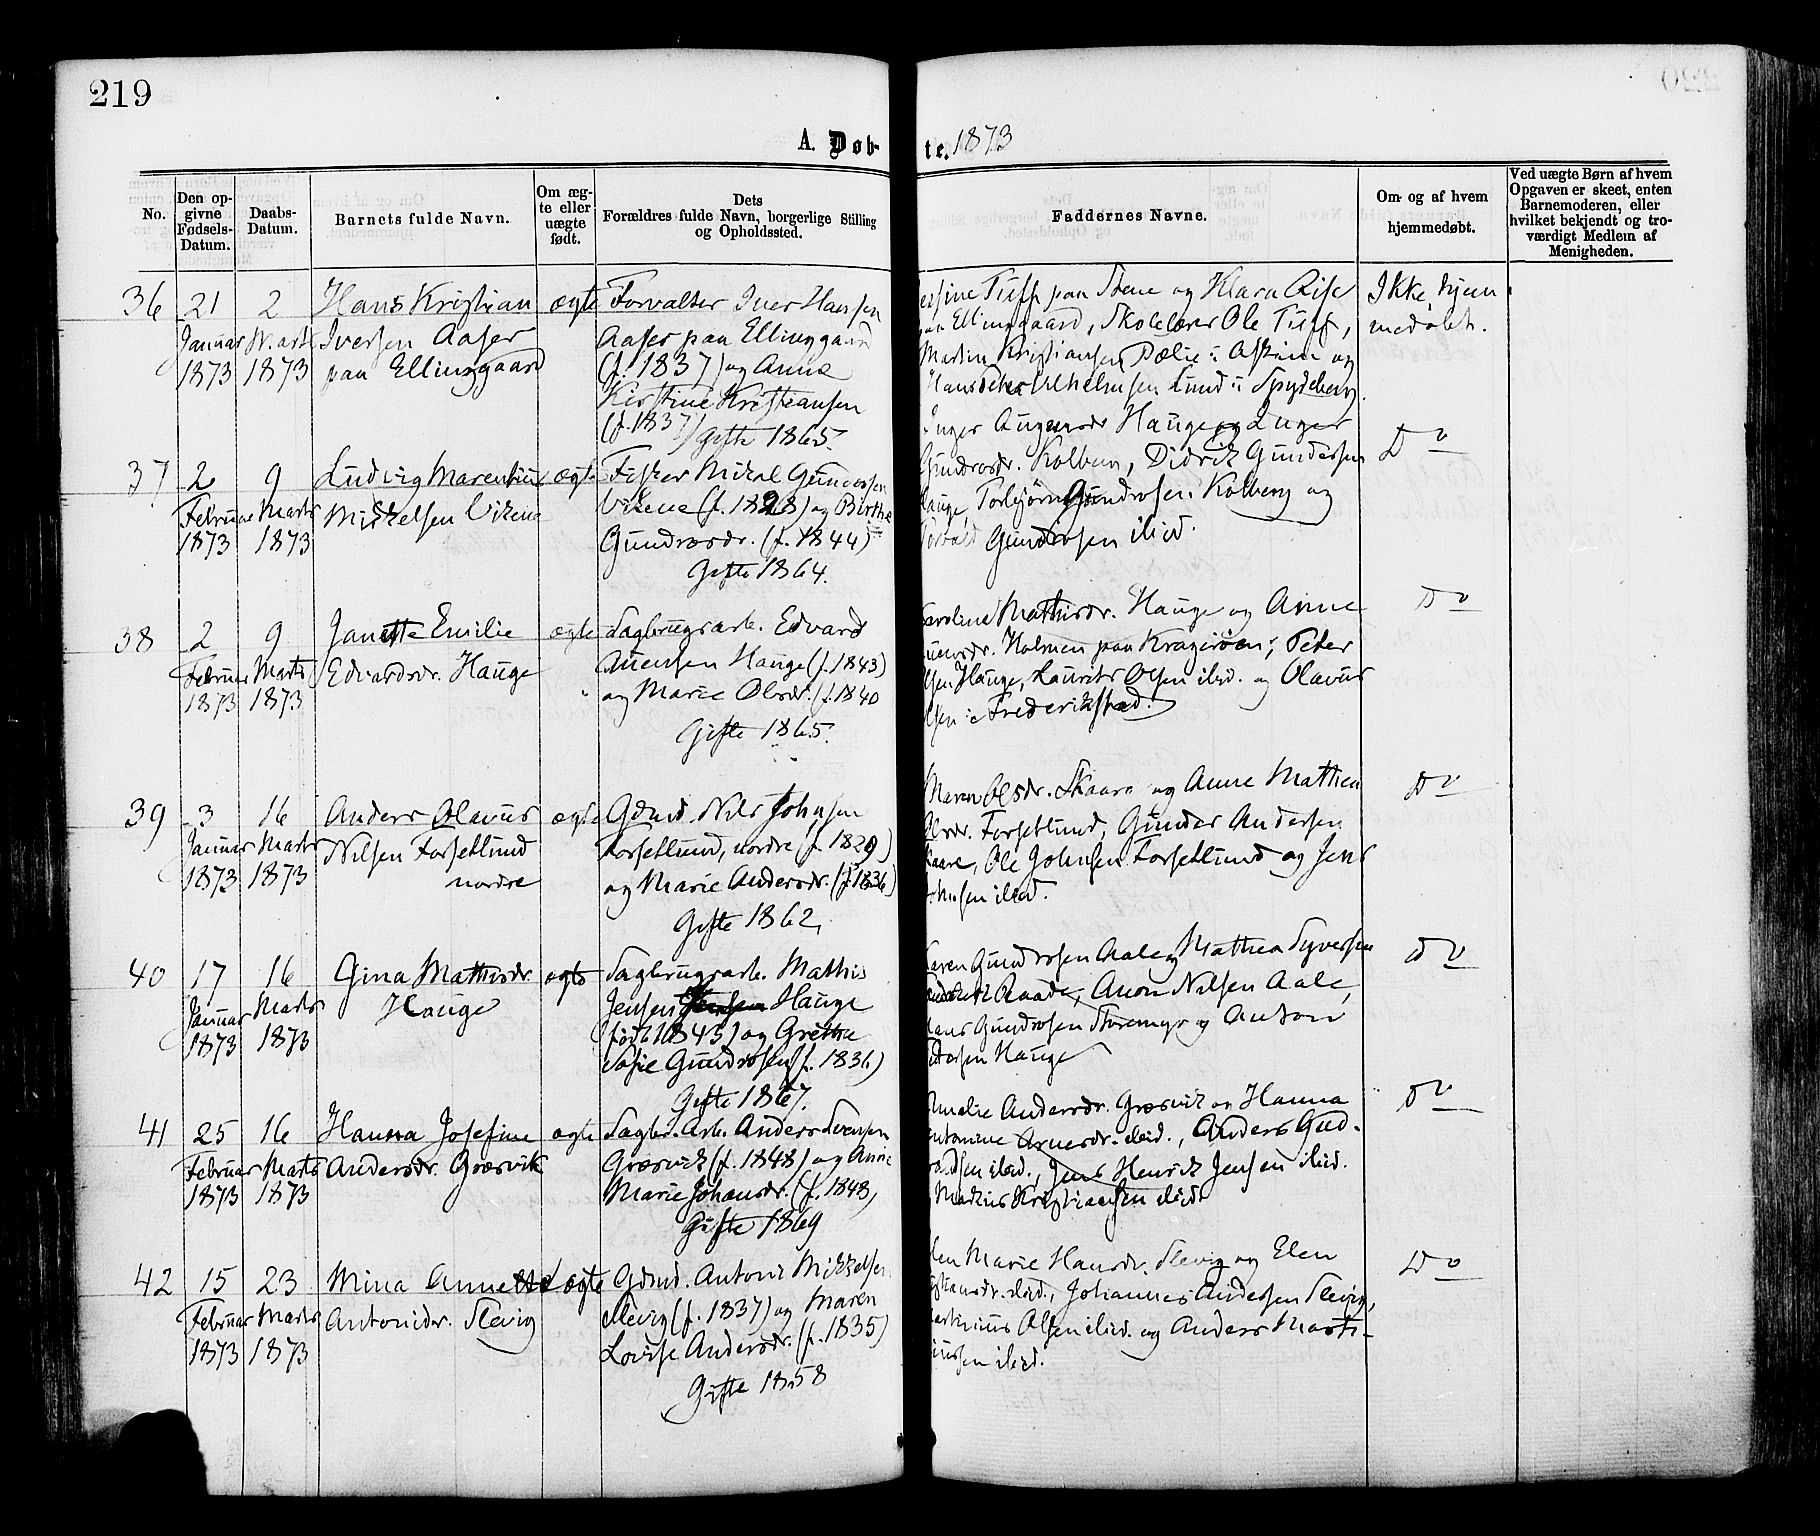 219
A. Døb-
te. 1873
No.
Den op-
givne
Fødsels-
Datum.
Daabs-
Datum.
Barnets fulde Navn.
Om æg-
te eller
uægte
født.
Dets
Forældres fulde Navn, borgerlige Stilling
og Opholdssted.
Faddernes Navne.
Om- og af hvem
hjemmedøbt.
Ved uægte Børn af hvem
Opgaven er skeet, enten
Barnemoderen, eller
hvilket bekjendt og tro-
værdigt Medlem af
Menigheden.
36 21 2 Hans Kristian ægte Forvalter Iver Hansen
Januar Marts Iversen Aaser Aaser paa Ellinggaard
1873 1873 paa Ellinggaard (f. 1837) og Anne
Kirstine Kristiansen
(f. 1837) Gifte 1865.
Tuff paa Stene og Klara Rise
paa Ellinggaard, Skolelærer Ole Tuff,
Martin Kristiansen Dælie i Askim og
Hans Peter Vilhelmsen Lund i Spydeberg.
Ikke hjem
medøbt.
37 2 9 Ludvig Marentius ægte Fisker Mikal Gundersen
Februar Marts Mikkelsen Vikene Vikene (f. 1828) og Birthe
1873 1873 Gundrosdr. (f. 1844)
Gifte 1864.
Inger Hauge og Inger
Gundrosdr. Kolberg, Didrik Gundersen
Hauge, Torbjørn Gundrosen Kolberg og
Gundrosen ibid.
Do
38 2 9 Janette Emilie ægte Sagbrugsarb. Edvard
Februar Marts Edvardsdr. Hauge Auensen Hauge (f. 1843)
1873 1873 og Marie Olsdr. (f. 1840
Gifte 1865.
Karoline Mathisdr. Hauge og Anne
Holmen paa Kragerøen, Peter
Olsen Hauge, Laurits Olsen ibid. og Olavus
Olsen i Frederikstad.
Do
39 3 16 Anders Olavus ægte Gdmd. Nils Johnsen
Januar Marts Nilsen Forsetlund Forsetlund, nordre (f. 1829)
1873 1873 nordre og Marie Andersdr. (f. 1836)
Gifte 1862.
Maren Olsdr. Skaare og Anne Mathea
Olsdr. Forsetlund, Gunder Andersen
Skaare, Ole Johnsen Forsetlund og Jens
Johnsen ibid.
Do
40 17 16 Gina Mathisdr. ægte Sagbrugsarb. Mathis
Januar Marts Hauge Jensen Jensen Hauge
1873 1873 født 1843) og Grethe
Sofie Gundrosen (f. 1836)
Gifte 1867.
Karen Gundrosen Aale og Mathea Syversen
Raade, Anon Nilsen Aale,
Hans Gundrosen Storemyr og Anton
Hauge
Do
41 25 16 Hanna Josefine ægte Sagbr. Arb. Anders Svensen
Februar Marts Andersdr. Græsvik Græsvik (f. 1848) og Anne
1873 1873 Marie Johansdr. (f. 1848)
Gifte 1869
Amalie Andersdr. Græsvik og Hanna
Antonine Arnesdr. ibid., Anders Gud-
ibid., Jens Henrik Jensen ibid.
Martius Kristiansen ibid.
Do
42 15 23 Mina Annette ægte Gdmd. Antoni Mikkelsen
Februar Marts Antonidr. Slevig Slevig (f. 1837) og Maren
1873 1873 Lovise Andersdr. (f. 1835)
Gifte 1858
Elen Marie Hansdr. Slevig og Elen
Kristiansdr. ibid., Johannes Andersen Slevig,
Olsen ibid. og Anders Marti-
niussen ibid.
Do